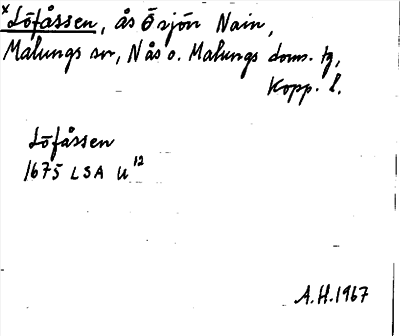 x Löfåssen, ås Ö sjön Nain,
Malungs sn, Nås o. Malungs doms. tg,
Kopp. l.
Löfåssen
1675 LSA U 12
A.H. 1967